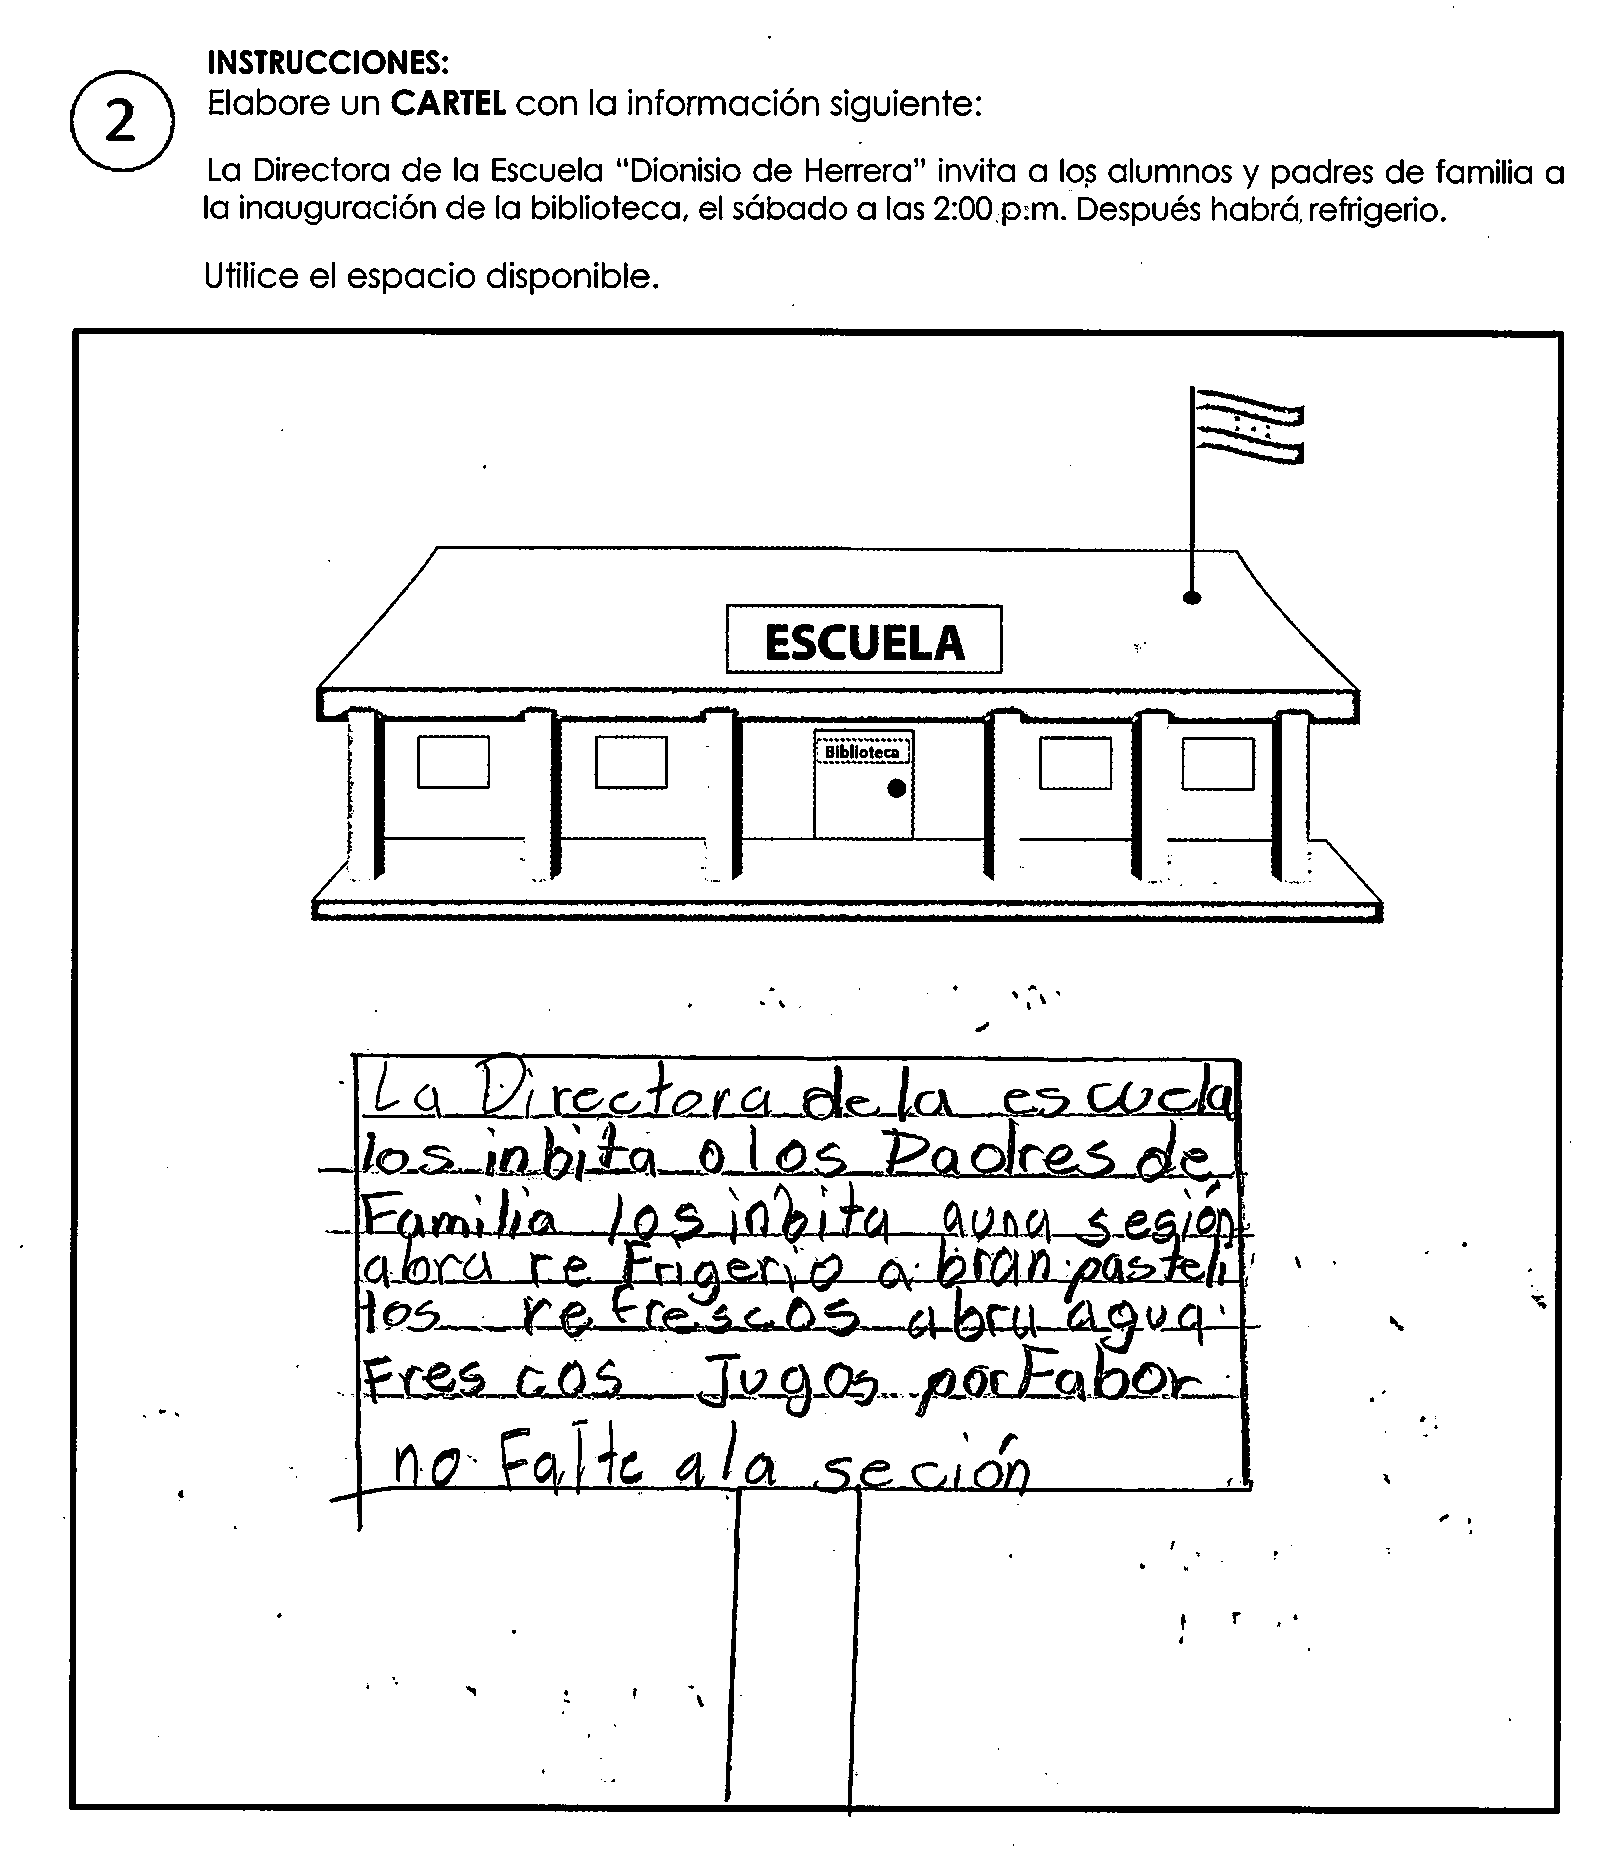 INSTRUCCIONES:
2
Elabore un CARTEL con la información siguiente:
La Directora de la Escuela "Dionisio de Herrera" invita a los alumnos y padres de familia a
la inauguración de la biblioteca, el sábado a las 2:00 p.m. Después habrá refrigerio.
Utilice el espacio disponible.
ESCUELA
Biblioteca
La Directora de la escuela
los inbita a los Padres de
Familia los inbita auna sesión
abra re Frigerio a bran pasteli
tos refrescos abra agua
Fres cos Jugos porFabor
no Falte ala seción